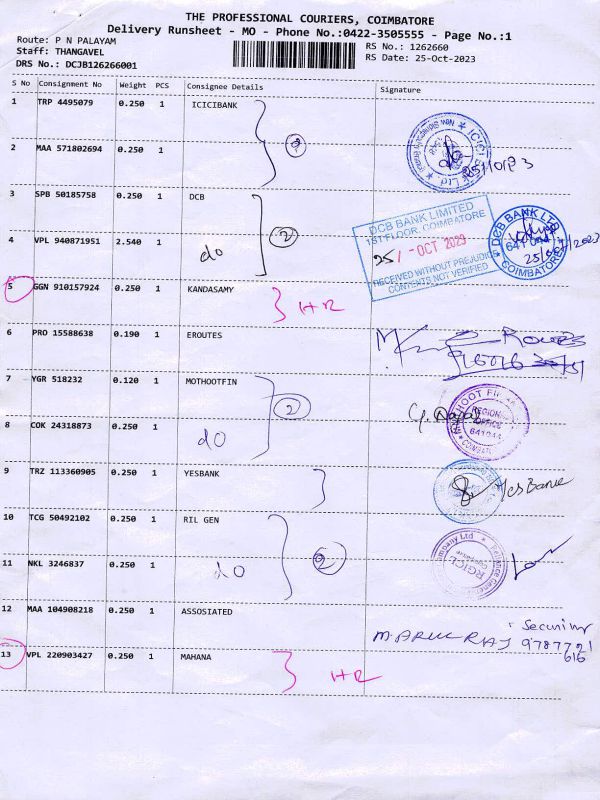 THE PROFESSIONAL COURIERS, COIMBATORE
Delivery Runsheet - MO - Phone No.:0422-3505555 - Page No.:1
Route: P N PALAYAM
Staff: THANGAVEL
DRS No.: DCJB126266001
RS No.: 1262660
RS Date: 25-Oct-2023
S No Consignment No Weight PCS Consignee Details Signature
1 TRP 4495079 0.250 1 ICICIBANK
2
2 MAA 571802694 0.250 1
3 SPB 50185758 0.250 1 DCB
2
DCB BANK LIMITED
1ST FLOOR, COIMBATORE
25/ -OCT 2023
RECEIVED WITHOUT PREJUDICE
CONTENTS NOT VERIFIED
DCB BANK LTD
COIMBATORE
25/10/2023
4 VPL 940871951 2.540 1 do
5 GGN 910157924 0.250 1 KANDASAMY HR
6 PRO 15588638 0.190 1 EROUTES
7 YGR 518232 0.120 1 MOTHOOTFIN
2
REGION
OFFICE
641044
8 COK 24318873 0.250 1 do
9 TRZ 113360905 0.250 1 YESBANK
Yes Bank
10 TCG 50492102 0.250 1 RIL GEN
2
RGICL
11 NKL 3246837 0.250 1 do
12 MAA 104908218 0.250 1 ASSOSIATED
M. ARUL RAJ 9787721
616
13 VPL 220903427 0.250 1 MAHANA HR